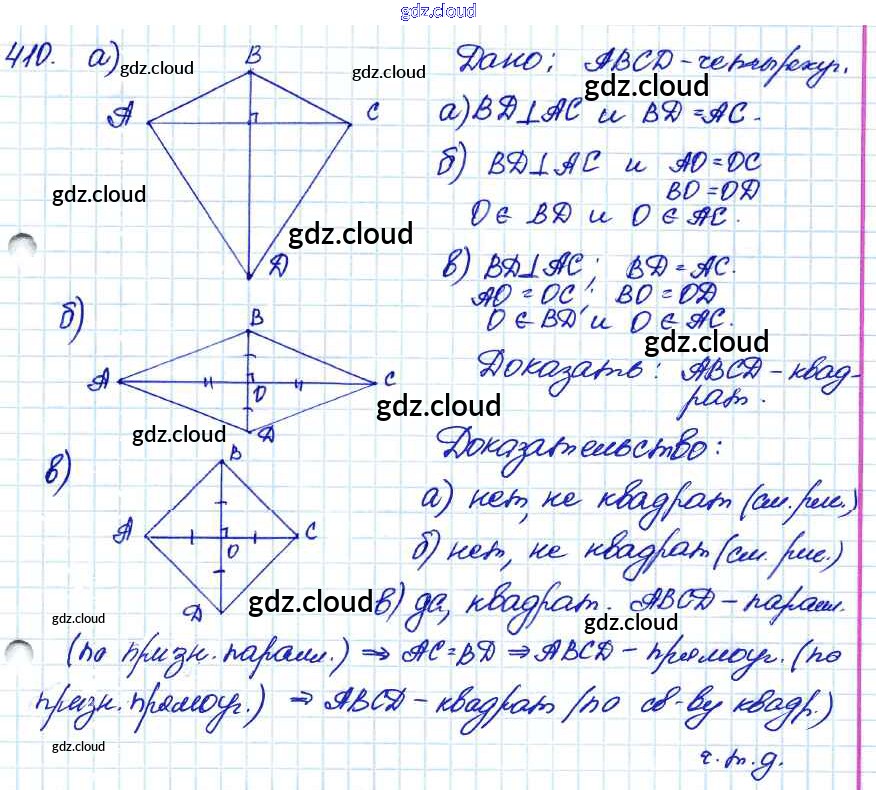 gdz.cloud
410. а)
B
A
C
D
gdz.cloud
gdz.cloud
gdz.cloud
gdz.cloud
Дано: ABCD - четырехуг.
gdz.cloud
а) BD⊥AC и BD = AC.
б) BD⊥AC и AO = OC
BO = OD
O ∈ BD и O ∈ AC.
в) BD⊥AC; BD = AC.
AO = OC; BO = OD
O ∈ BD и O ∈ AC.
gdz.cloud
б)
B
A
O
C
D
gdz.cloud
gdz.cloud
Доказать: ABCD - квад-
рат.
Доказательство:
в)
B
A
O
C
D
gdz.cloud
gdz.cloud
а) нет, не квадрат (см. рис.)
б) нет, не квадрат (см. рис.)
в) да, квадрат. ABCD - паралл.
gdz.cloud
(по призн. паралл.) ⇒ AC = BD ⇒ ABCD - прямоуг. (по
призн. прямоуг.) ⇒ ABCD - квадрат (по св-ву квадр.)
gdz.cloud
gdz.cloud
ч.т.д.